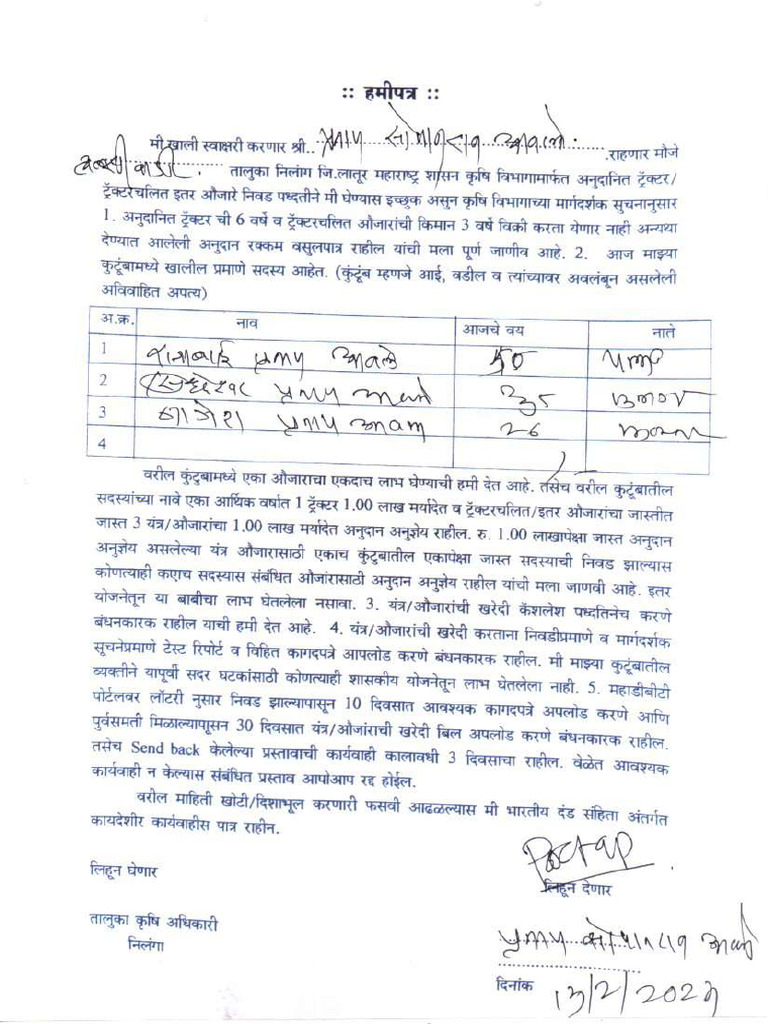 :: हमीपत्र ::
मी खाली स्वाक्षरी करणार श्री.. प्रताप सोपानराव आवले .राहणार मौजे
तालुका निलंग जि.लातूर महाराष्ट्र शासन कृषि विभागामार्फत अनुदानित ट्रॅक्टर/
ट्रॅक्टरचलित इतर औजारे निवड पध्दतीने मी घेण्यास इच्छुक असुन कृषि विभागाच्या मार्गदर्शक सुचनानुसार
1. अनुदानित ट्रॅक्टर ची 6 वर्षे व ट्रॅक्टरचलित औजारांची किमान 3 वर्षे विक्री करता येणार नाही अन्यथा
देण्यात आलेली अनुदान रक्कम वसुलपात्र राहील यांची मला पूर्ण जाणीव आहे. 2. आज माझ्या
कुटूंबामध्ये खालील प्रमाणे सदस्य आहेत. (कुंटूंब म्हणजे आई, वडील व त्यांच्यावर अवलंबून असलेली
अविवाहित अपत्य)
अ.क्र. नाव आजचे वय नाते
1 प्रताप आवले 50 पत्नी
2 प्रताप आवले
3 प्रताप 26
4
वरील कुंटुबामध्ये एका औजाराचा एकदाच लाभ घेण्याची हमी देत आहे. तसेच वरील कुटूंबातील
सदस्यांच्या नावे एका आर्थिक वर्षात 1 ट्रॅक्टर 1.00 लाख मर्यादेत व ट्रॅक्टरचलित/इतर औजारांचा जास्तीत
जास्त 3 यंत्र/औजारांचा 1.00 लाख मर्यादेत अनुदान अनुज्ञेय राहील. रु. 1.00 लाखापेक्षा जास्त अनुदान
अनुज्ञेय असलेल्या यंत्र औजारासाठी एकाच कुंटुबातील एकापेक्षा जास्त सदस्याची निवड झाल्यास
कोणत्याही कएाच सदस्यास संबंधित औजांरासाठी अनुदान अनुज्ञेय राहील यांची मला जाणवी आहे. इतर
योजनेतून या बाबीचा लाभ घेतलेला नसावा. 3. यंत्र/औजारांची खरेदी कॅशलेश पध्दतिनेच करणे
बंधनकारक राहील याची हमी देत आहे. 4. यंत्र/औजारांची खरेदी करताना निवडीप्रमाणे व मार्गदर्शक
सूचनेप्रमाणे टेस्ट रिपोर्ट व विहित कागदपत्रे आपलोड करणे बंधनकारक राहील. मी माझ्या कुटूंबातील
व्यक्तीने यापूर्वी सदर घटकांसाठी कोणत्याही शासकीय योजनेतून लाभ घेतलेला नाही. 5. महाडीबीटी
पोर्टलवर लॉटरी नुसार निवड झाल्यापासून 10 दिवसात आवश्यक कागदपत्रे अपलोड करणे आणि
पुर्वसमती मिळाल्यापाूसन 30 दिवसात यंत्र/औजांराची खरेदी बिल अपलोड करणे बंधनकारक राहील.
तसेच Send back केलेल्या प्रस्तावाची कार्यवाही कालावधी 3 दिवसाचा राहील. वेळेत आवश्यक
कार्यवाही न केल्यास संबंधित प्रस्ताव आपोआप रद्द होईल.
वरील माहिती खोटी/दिशाभूल करणारी फसवी आढळल्यास मी भारतीय दंड संहिता अंतर्गत
कायदेशीर कार्यवाहीस पात्र राहीन.
लिहून घेणार
लिहून देणार
तालुका कृषि अधिकारी
निलंगा
प्रताप सोपानराव आवले
दिनांक 13/2/2023